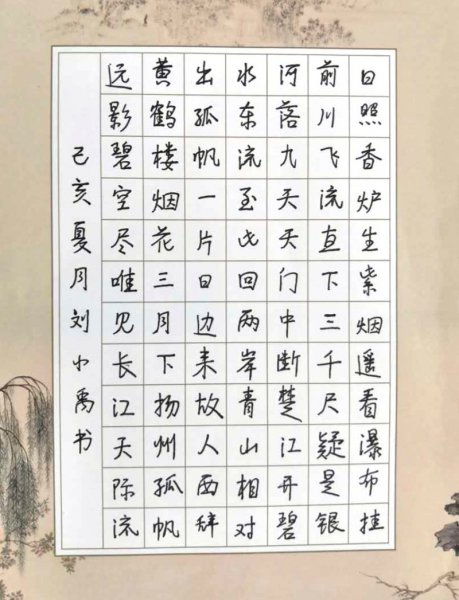 日照香炉生紫烟遥看瀑布挂
前川飞流直下三千尺疑是银
河落九天天门中断楚江开碧
水东流至此回两岸青山相对
出孤帆一片日边来故人西辞
黄鹤楼烟花三月下扬州孤帆
远影碧空尽唯见长江天际流
己亥夏月刘小禹书